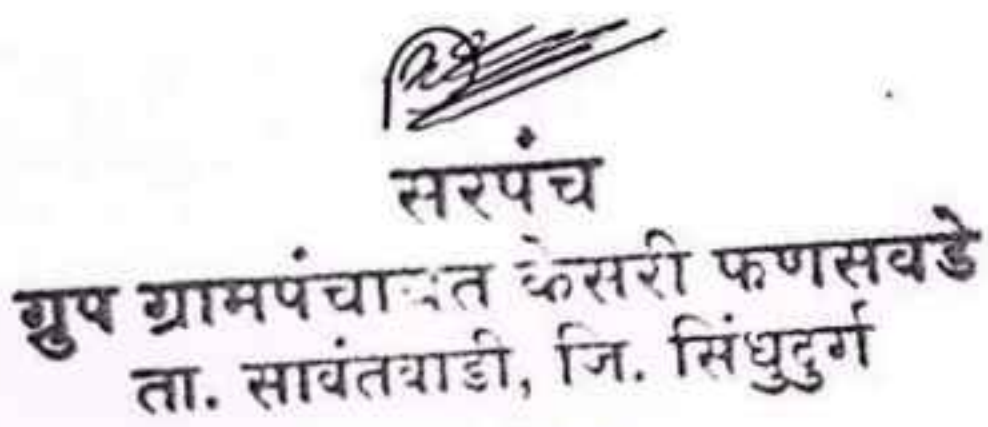 सरपंच
ग्रुप ग्रामपंचायत केसरी फणसवडे
ता. सावंतवाडी, जि. सिंधुदुर्ग